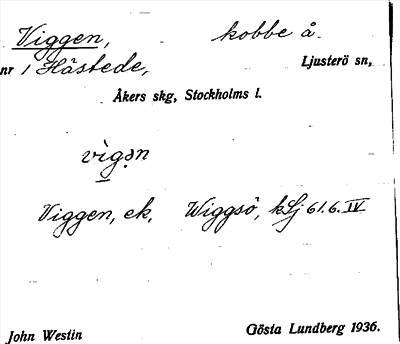 Viggen, kobbe å.
nr 1 Hästede, Ljusterö sn,
Åkers skg, Stockholms l.
vìgən
Viggen, ek, Wiggsö, kLj 61.6.IV
John Westin Gösta Lundberg 1936.